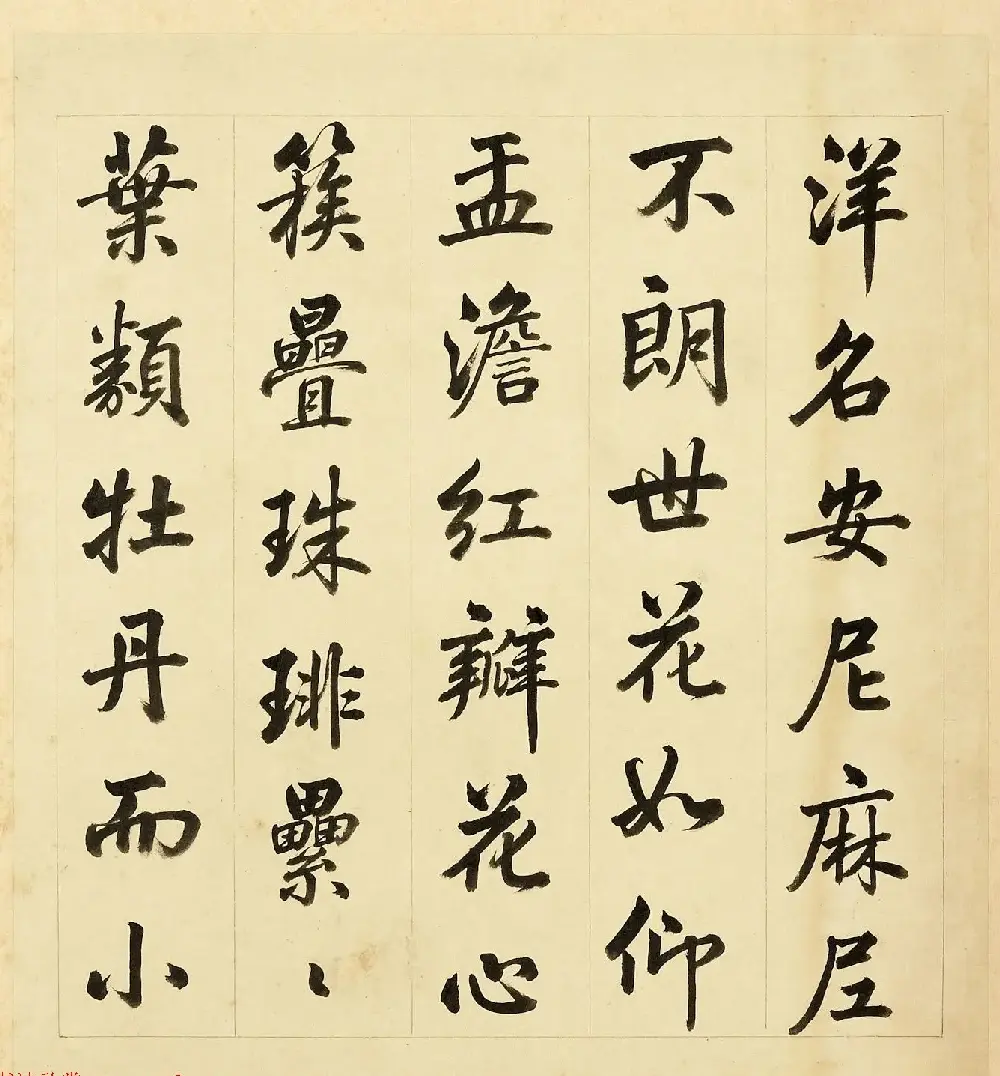 洋名安尼麻尼
不朗世花如仰
盂澹红瓣花心
簇疊珠琲纍〻
葉類牡丹而小